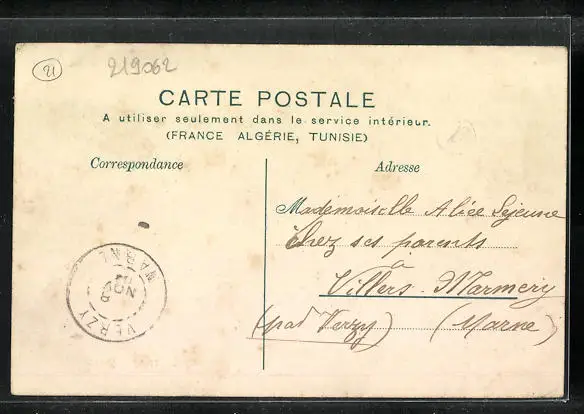 21
219062
CARTE POSTALE
A utiliser seulement dans le service intérieur.
(FRANCE ALGÉRIE, TUNISIE)
Correspondance
Adresse
Mademoiselle Alice Lejeune
Chez ses parents
à
Villers-Marmery
(par Verzy) (Marne)
VERZY
MARNE
8
NOV